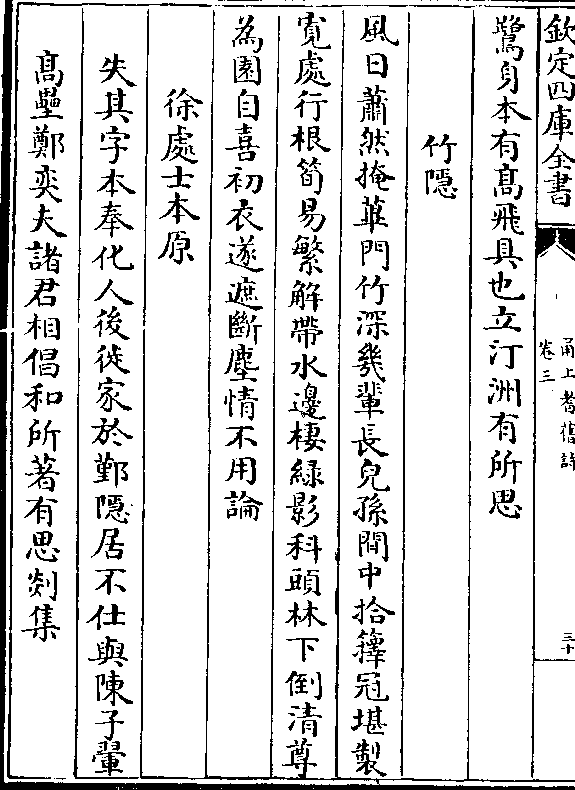 欽定四庫全書
甬上耆舊詩
卷三
三十
鷺身本有高飛具也立汀洲有所思
竹隠
風日蕭然掩蓽門竹深幾輩長兒孫閒中拾籜冠堪製
寛處行根筍易繁解帶水邊棲緑影科頭林下倒清尊
為園自喜初衣遂遮斷塵情不用論
徐處士本原
失其字本奉化人後徙家於鄞隠居不仕與陳子翬
高壘鄭奕夫諸君相倡和所著有思剡集